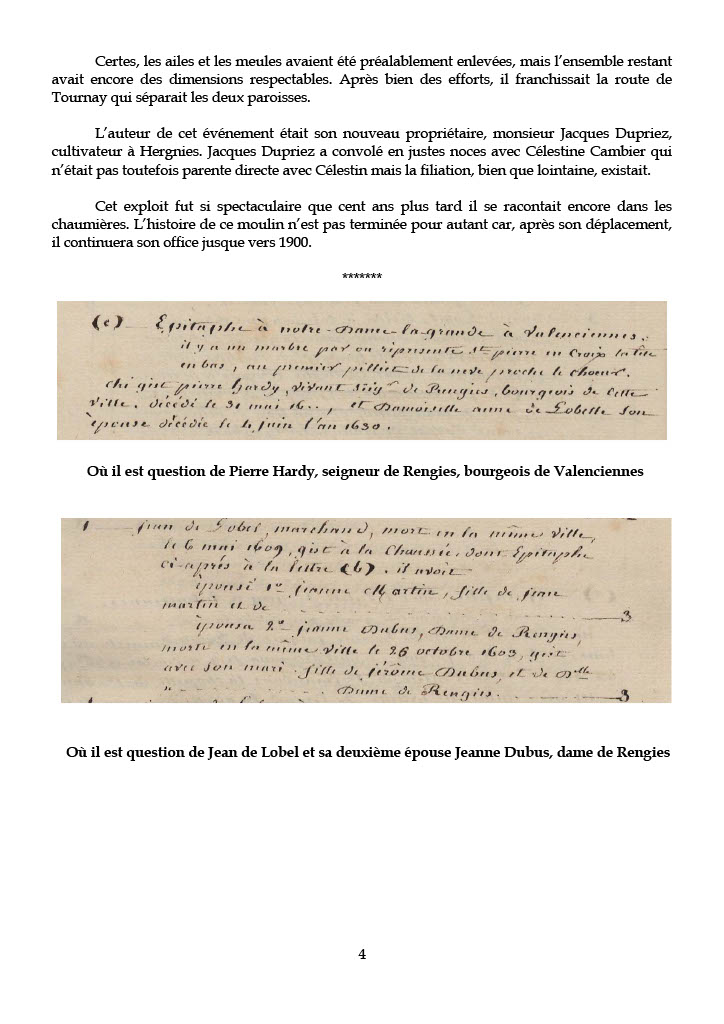 Certes, les ailes et les meules avaient été préalablement enlevées, mais l’ensemble restant
avait encore des dimensions respectables. Après bien des efforts, il franchissait la route de
Tournay qui séparait les deux paroisses.
L’auteur de cet événement était son nouveau propriétaire, monsieur Jacques Dupriez,
cultivateur à Hergnies. Jacques Dupriez a convolé en justes noces avec Célestine Cambier qui
n’était pas toutefois parente directe avec Célestin mais la filiation, bien que lointaine, existait.
Cet exploit fut si spectaculaire que cent ans plus tard il se racontait encore dans les
chaumières. L’histoire de ce moulin n’est pas terminée pour autant car, après son déplacement,
il continuera son office jusque vers 1900.
*******
(c) Epitaphe à notre-Dame-la-grande à Valenciennes.
il y a un marbre par ou représente St pierre en Croix la tête
en bas, au premier pillier de la neve proche le choeur.
chi gist pierre hardy, vivant Seigr de Rengies, bourgeois de cette
ville. décédé le 31 mai 16.., et Damoiselle anne de Lobelle son
épouse décédée le 4 juin l'an 1630.
Où il est question de Pierre Hardy, seigneur de Rengies, bourgeois de Valenciennes
1 jean de Lobel, marchand, mort en la même ville,
le 6 mai 1609, gist à la Chaussée, dont Epitaphe
ci-après à la lettre (b). il avoit
épousé 1º jeanne Martin, fille de jean
martin et de 3
épousa 2º jeanne Dubus, Dame de Rengies,
morte en la même ville le 26 octobre 1603, gist
avec son mari. fille de jérôme Dubus, et de Dlle
" Dame de Rengies. 3
Où il est question de Jean de Lobel et sa deuxième épouse Jeanne Dubus, dame de Rengies
4